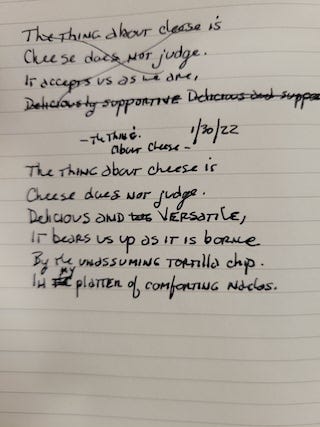 The thing about cheese is
Cheese does not judge.
It accepts us as we are,
Deliciously supportive Delicious and suppo
- The Thing 1/30/22
About Cheese -
The thing about cheese is
Cheese does not judge.
Delicious and versatile,
It bears us up as it is borne
By the unassuming tortilla chip.
In my platter of comforting nachos.